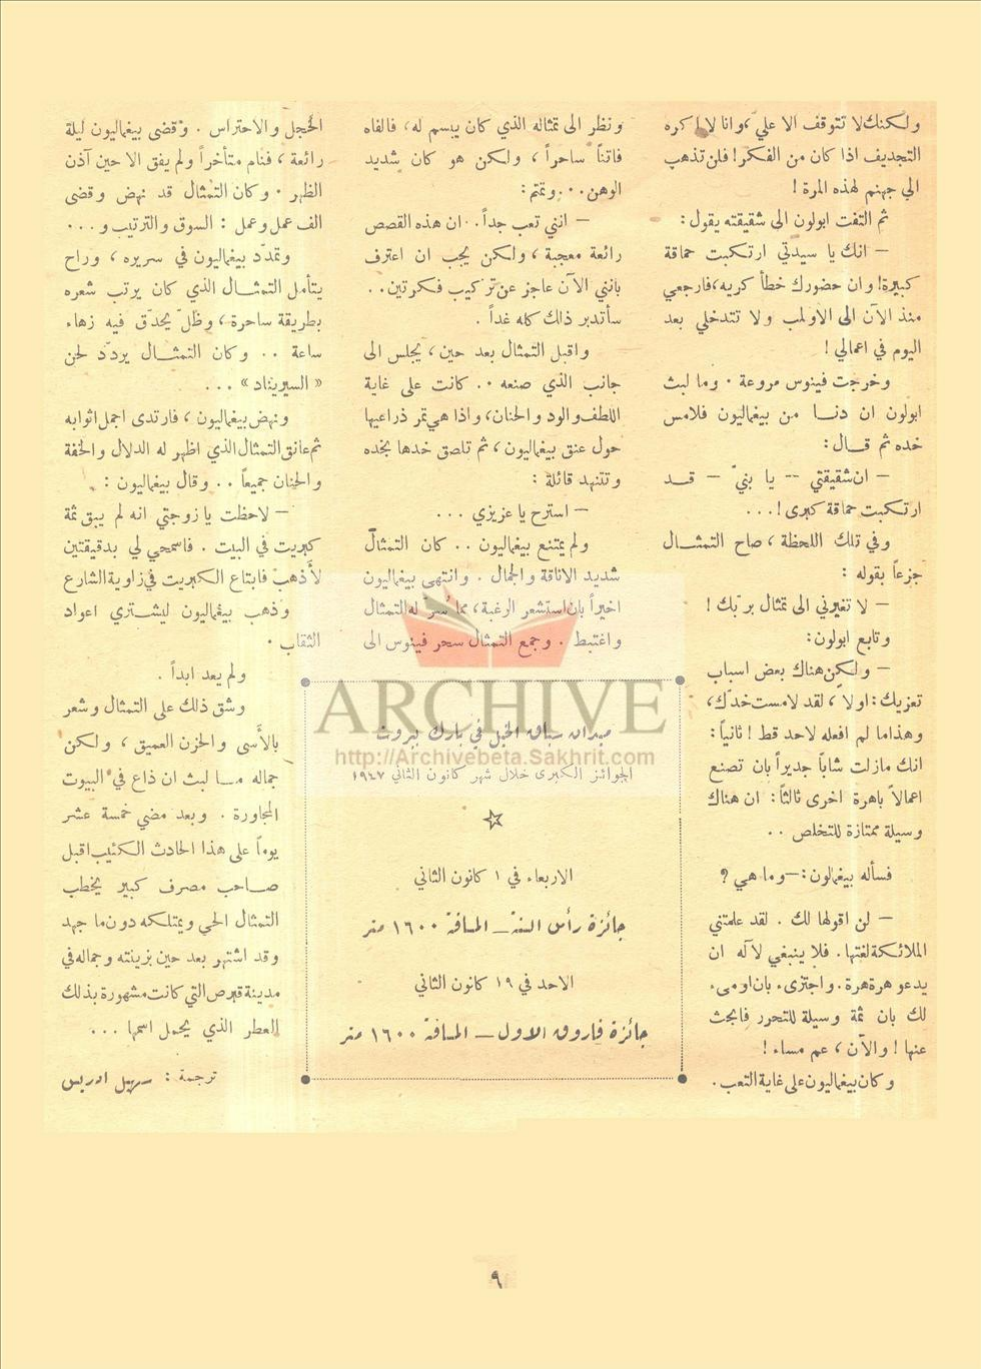 ولكنك لا تتوقف الا عليّ، وانا لا اكره
التجديف اذا كان من الفكر! فلن تذهب
الى جهنم لهذه المرة!
ثم التفت ابولون الى شقيقته يقول:
— انك يا سيدتي ارتكبت حماقة
كبيرة! وان حضورك خطأ كريه، فارجعي
منذ الآن الى الاولمب ولا تتدخلي بعد
اليوم في اعمالي!
وخرجت فينوس مروعة. وما لبث
ابولون ان دنا من بيغماليون فلامس
خده ثم قال:
— ان شقيقتي -- يا بنيّ — قد
ارتكبت حماقة كبرى!...
وفي تلك اللحظة، صاح التمثال
جزعاً بقوله:
— لا تغيرني الى تمثال بربّك!
وتابع ابولون:
— ولكن هناك بعض اسباب
تعزيك: اولا، لقد لامست خدّك،
وهذا ما لم افعله لاحد قط! ثانياً:
انك مازلت شاباً جديراً بان تصنع
اعمالاً باهرة اخرى ثالثاً: ان هناك
وسيلة ممتازة للتخلص ..
فسأله بيغمالون:— وما هي؟
— لن اقولها لك. لقد علمتني
الملائكة لغتها. فلا ينبغي لآله ان
يدعو هرة هرة. واجتزىء بان اومىء
لك بان ثمة وسيلة للتحرر فابحث
عنها! والآن، عم مساء!
وكان بيغماليون على غاية التعب.
ونظر الى تمثاله الذي كان يبسم له، فالفاه
فاتناً ساحراً، ولكن هو كان شديد
الوهن... وتمتم:
— انني تعب جداً.. ان هذه القصص
رائعة معجبة، ولكن يجب ان اعترف
بانني الآن عاجز عن تركيب فكرتين..
سأتدبر ذلك كله غداً.
واقبل التمثال بعد حين، يجلس الى
جانب الذي صنعه .. كانت على غاية
اللطف والود والحنان، واذا هي تمر ذراعيها
حول عنق بيغماليون، ثم تلصق خدها بخده
وتتنهد قائلة:
— استرح يا عزيزي ...
ولم يمتنع بيغماليون .. كان التمثال
شديد الاناقة والجمال. وانتهى بيغماليون
اخيراً بان استشعر الرغبة، مما سرّ له التمثال
واغتبط. وجمع التمثال سحر فينوس الى
الخجل والاحتراس. وقضى بيغماليون ليلة
رائعة، فنام متأخراً ولم يفق الا حين آذن
الظهر. وكان التمثال قد نهض وقضى
الف عمل وعمل: السوق والترتيب و...
وتمدّد بيغماليون في سريره، وراح
يتأمل التمثال الذي كان يرتب شعره
بطريقة ساحرة، وظلّ يحدّق فيه زهاء
ساعة .. وكان التمثال يردّد لحن
« السيريناد » ...
ونهض بيغماليون، فارتدى اجمل اثوابه
ثم عانق التمثال الذي اظهر له الدلال والخفة
والحنان جميعاً .. وقال بيغماليون:
— لاحظت يا زوجتي انه لم يبق ثمة
كبريت في البيت. فاسمحي لي بدقيقتين
لأذهب فابتاع الكبريت في زاوية الشارع
وذهب بيغماليون ليشتري اعواد
الثقاب.
ولم يعد ابداً.
وشق ذلك على التمثال وشعر
بالأسى والحزن العميق، ولكن
جماله ما لبث ان ذاع في البيوت
المجاورة. وبعد مضي خمسة عشر
يوماً على هذا الحادث الكئيب اقبل
صاحب مصرف كبير يخطب
التمثال الحي ويمتلكه دون ما جهد
وقد اشتهر بعد حين بزينته وجماله في
مدينة قبرص التي كانت مشهورة بذلك
العطر الذي يحمل اسمها ...
ترجمة: سهيل ادريس
ميدان سباق الخيل في بارك بيروت
الجوائز الكبرى خلال شهر كانون الثاني ١٩٤٧
الاربعاء في ١ كانون الثاني
جائزة رأس السنة — المسافة ١٦٠٠ متر
الاحد في ١٩ كانون الثاني
جائزة فاروق الاول — المسافة ١٦٠٠ متر
ARCHIVE
http://Archivebeta.Sakhrit.com
٩